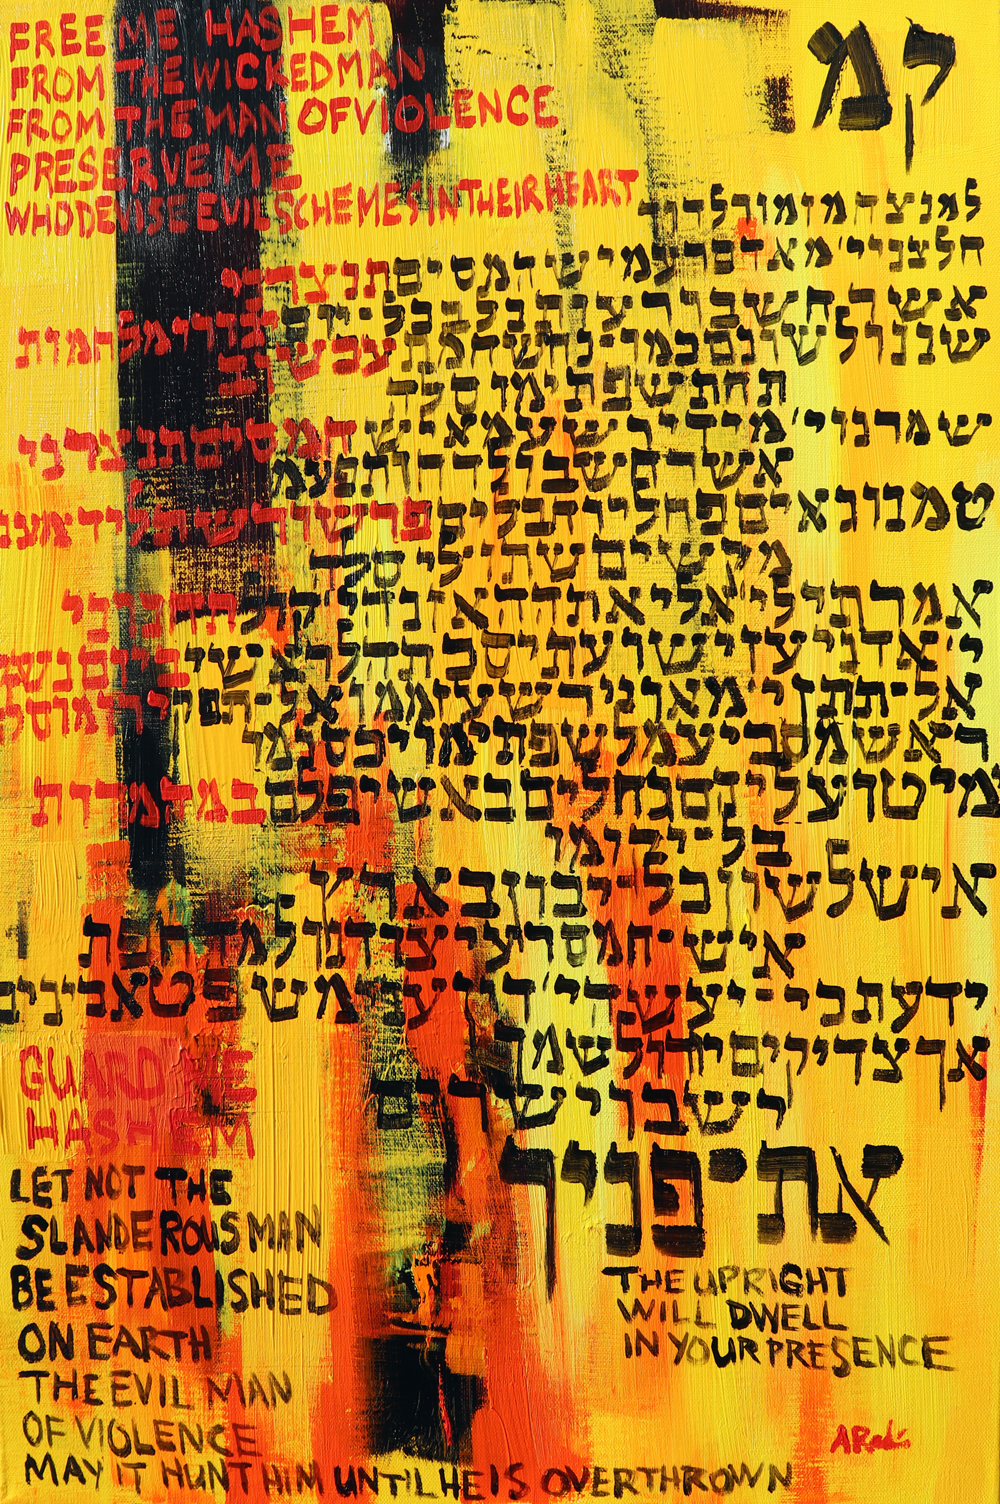 FREE ME HASHEM
FROM THE WICKED MAN
FROM THE MAN OF VIOLENCE
PRESERVE ME
WHO DEVISE EVIL SCHEMES IN THEIR HEART
קמ
למנצח מזמור לדוד
חלצני י' מאדם רע מיש חמסים תנצרני
אשר חשבו רעות בלב כל-יום יגורו מלחמות
שננו לשונם כמו-נחש חמת עכשוב
תחת שפתימו סלה
שמרני י' מידי רשע מאיש חמסים תנצרני
אשר חשבו לדחות פעמ
טמנו גאים פח לי וחבלים פרשו רשת ליד מעג
מקשים שתו לי סלה
אמרתי לי' אלי אתה האזינה י' קול תחנוני
י' אדני עז ישועתי סכ תה לראשי ביום נשק
אל-תתן י' מאויי רשע זממו אל-תפק ירומו סל
ראש מסבי עמל שפתימו יכסומו
ימיטו עליהם גחלים באש יפלם במהמרות
בל-יקומו
איש לשון בל-יכון בארץ
איש-חמס רע יצודנו למדחפת
ידעתי כי-יעשה י' דין עני משפט אבינים
אך צדיקים יודו לשמך
ישבו ישרים
את פניך
GUARD ME
HASHEM
LET NOT THE
SLANDEROUS MAN
BE ESTABLISHED
ON EARTH
THE EVIL MAN
OF VIOLENCE
MAY IT HUNT HIM UNTIL HE IS OVERTHROWN
THE UPRIGHT
WILL DWELL
IN YOUR PRESENCE